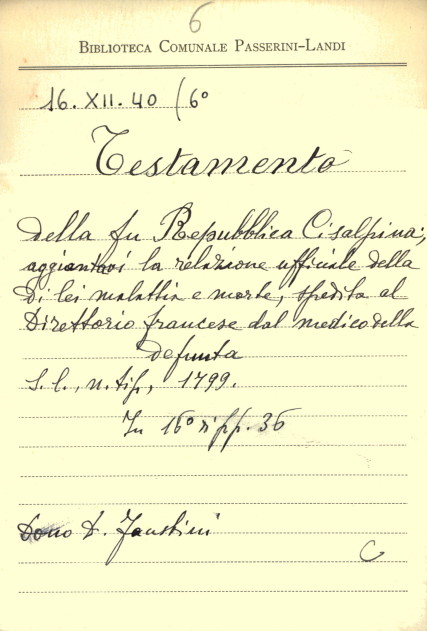 6
BIBLIOTECA COMUNALE PASSERINI-LANDI
16. XII. 40 (6°
Testamento
della fu Repubblica Cisalpina;
aggiuntavi la relazione ufficiale della
di lei malattia e morte, spedita al
Direttorio francese dal medico della
defunta
S. l., n. tip., 1799.
In 16° pp. 36
Dono D. Faustini
C